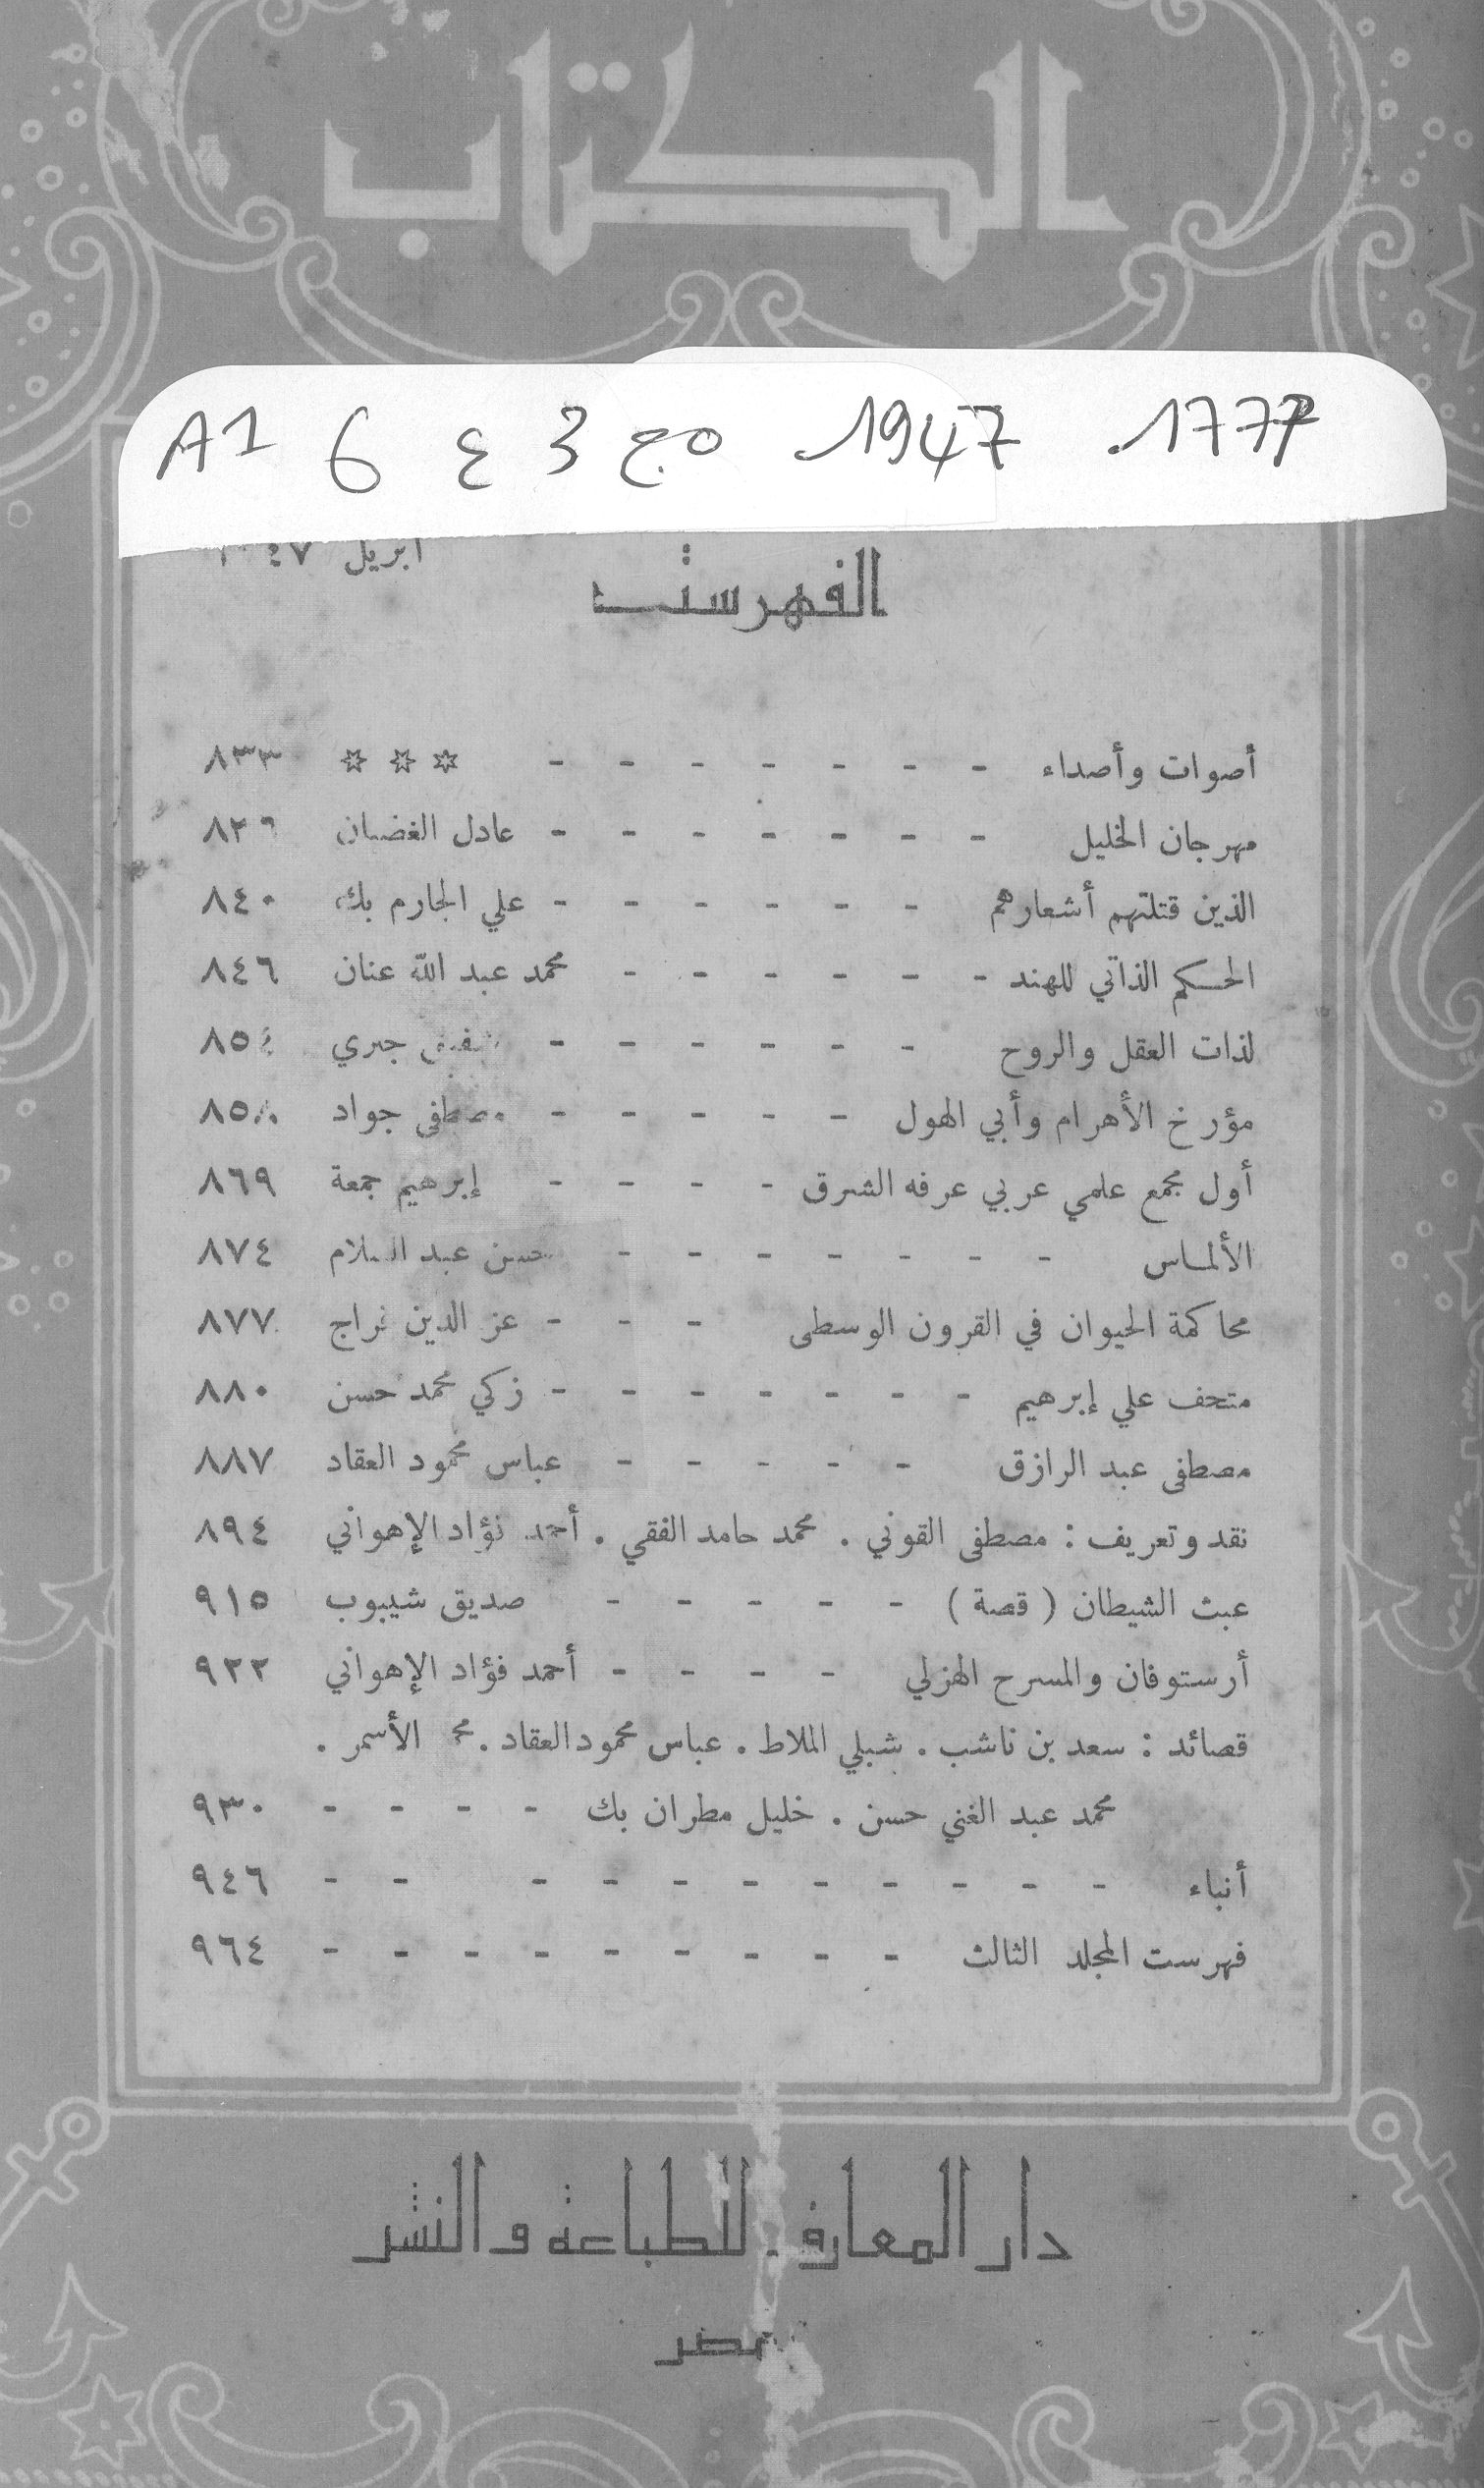 الكتاب
A1 6 ع 3 ج 5 1947 .1777
ابريل
الفهرست
أصوات وأصداء - - - - - - - * * * ٨٣٣
مهرجان الخليل - - - - - - - عادل الغضبان
الذين قتلتهم أشعارهم - - - - - - علي الجارم بك ٨٤٠
الحكم الذاتي للهند - - - - - - محمد عبد الله عنان ٨٤٦
لذات العقل والروح - - - - - - شفيق جبري ٨٥٤
مؤرخ الأهرام وأبي الهول - - - - - مصطفى جواد ٨٥٨
أول مجمع علمي عربي عرفه الشرق - - - - إبرهيم جمعة ٨٦٩
الألماس - - - - - - - حسن عبد السلام ٨٧٤
محاكمة الحيوان في القرون الوسطى - - - عز الدين فراج ٨٧٧
متحف علي إبرهيم - - - - - - - زكي محمد حسن ٨٨٠
مصطفى عبد الرازق - - - - - عباس محمود العقاد ٨٨٧
نقد وتعريف : مصطفى القوني . محمد حامد الفقي . أحمد فؤاد الإهواني ٨٩٤
عبث الشيطان ( قصة ) - - - - - صديق شيبوب ٩١٥
أرستوفان والمسرح الهزلي - - - - أحمد فؤاد الإهواني ٩٢٢
قصائد : سعد بن ناشب . شبلي الملاط . عباس محمود العقاد . الأسمر .
محمد عبد الغني حسن . خليل مطران بك - - - - ٩٣٠
أنباء - - - - - - - - - - - ٩٤٦
فهرست المجلد الثالث - - - - - - - - - ٩٦٤
دار المعارف للطباعة والنشر
بمصر